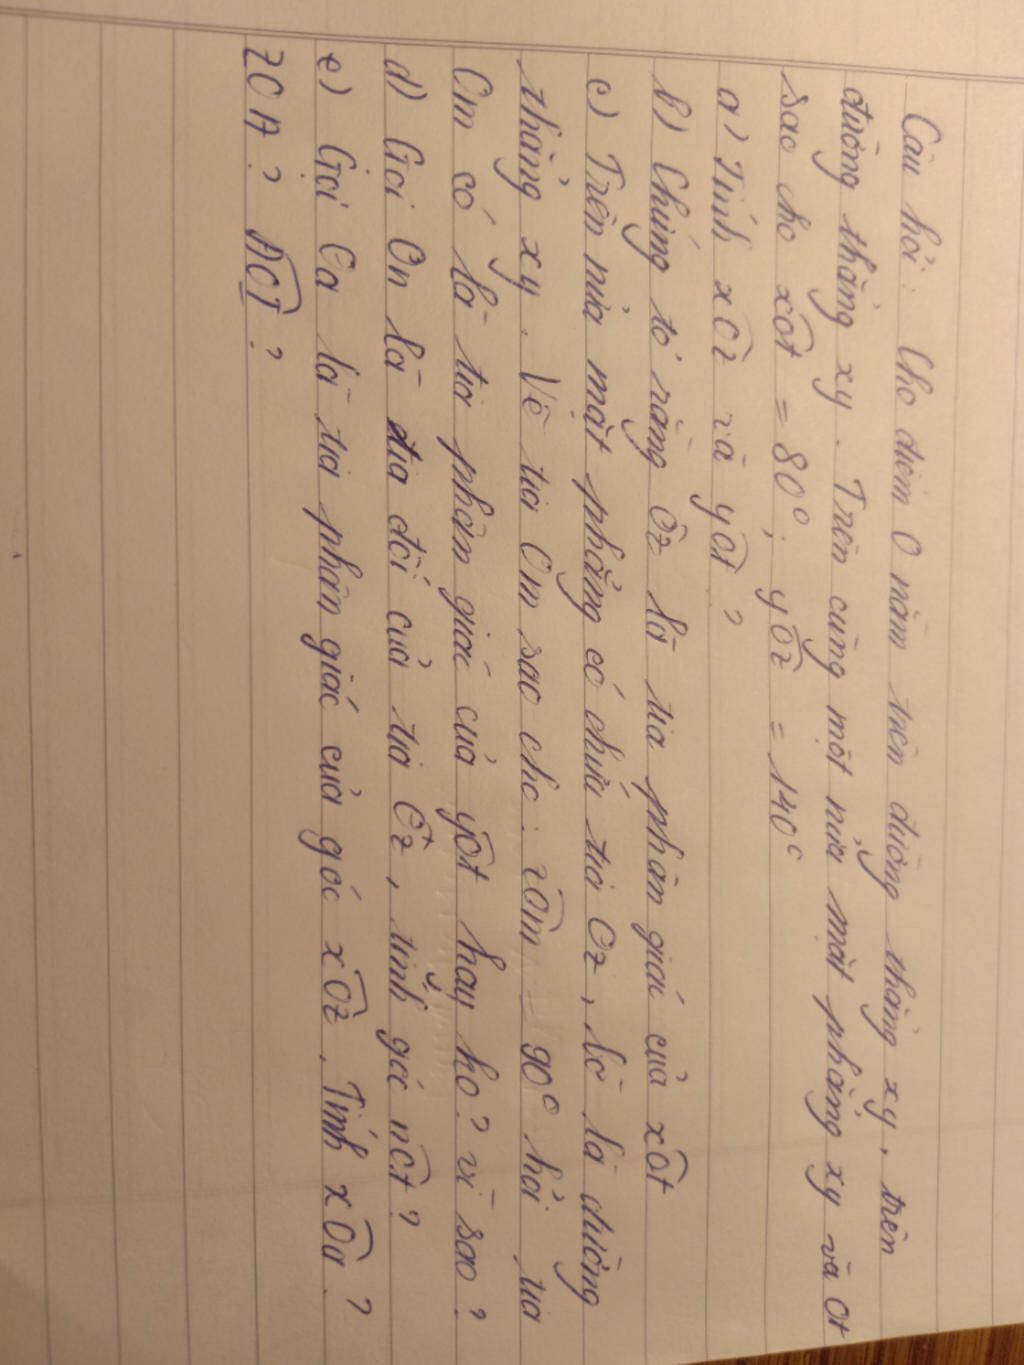 Câu hỏi: Cho điểm O nằm trên đường thẳng xy, trên
đường thẳng xy. Trên cùng một nửa mặt phẳng xy và Ot
sao cho xOt = 80°; yOz = 140°
a) Tính xOz và yOt?
b) Chứng tỏ rằng Oz là tia phân giác của xOt
c) Trên nửa mặt phẳng có chứa tia Oz, bờ là đường
thẳng xy. Vẽ tia Om sao cho: zOm = 90° hỏi tia
Om có là tia phân giác của yOt hay ko? vì sao?
d) Gọi On là tia đối của tia Oz, tính góc nOt?
e) Gọi Oa là tia phân giác của góc xOz. Tính xOa?
ZOA? AOT?